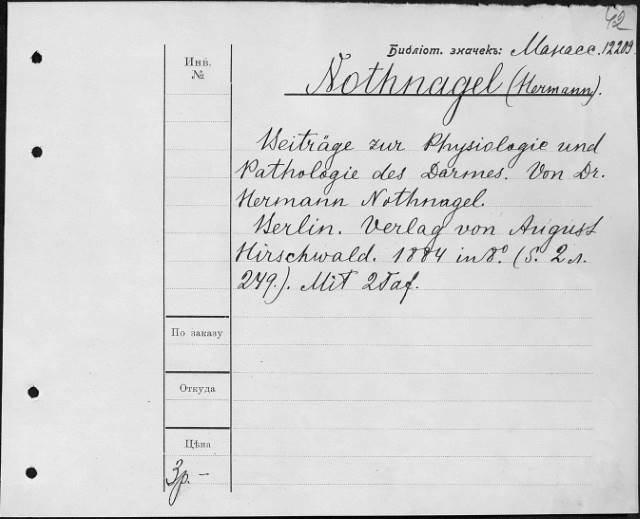 42
Библіот. значекъ: Манасс. 12209.
Инв.
№
Nothnagel (Hermann).
Beiträge zur Physiologie und
Pathologie des Darmes. Von Dr.
Hermann Nothnagel.
Berlin. Verlag von August
Hirschwald. 1884 in 8º. (S. 2 л.
249.). Mit 2 Taf.
По заказу
Откуда
Цѣна
3р. -